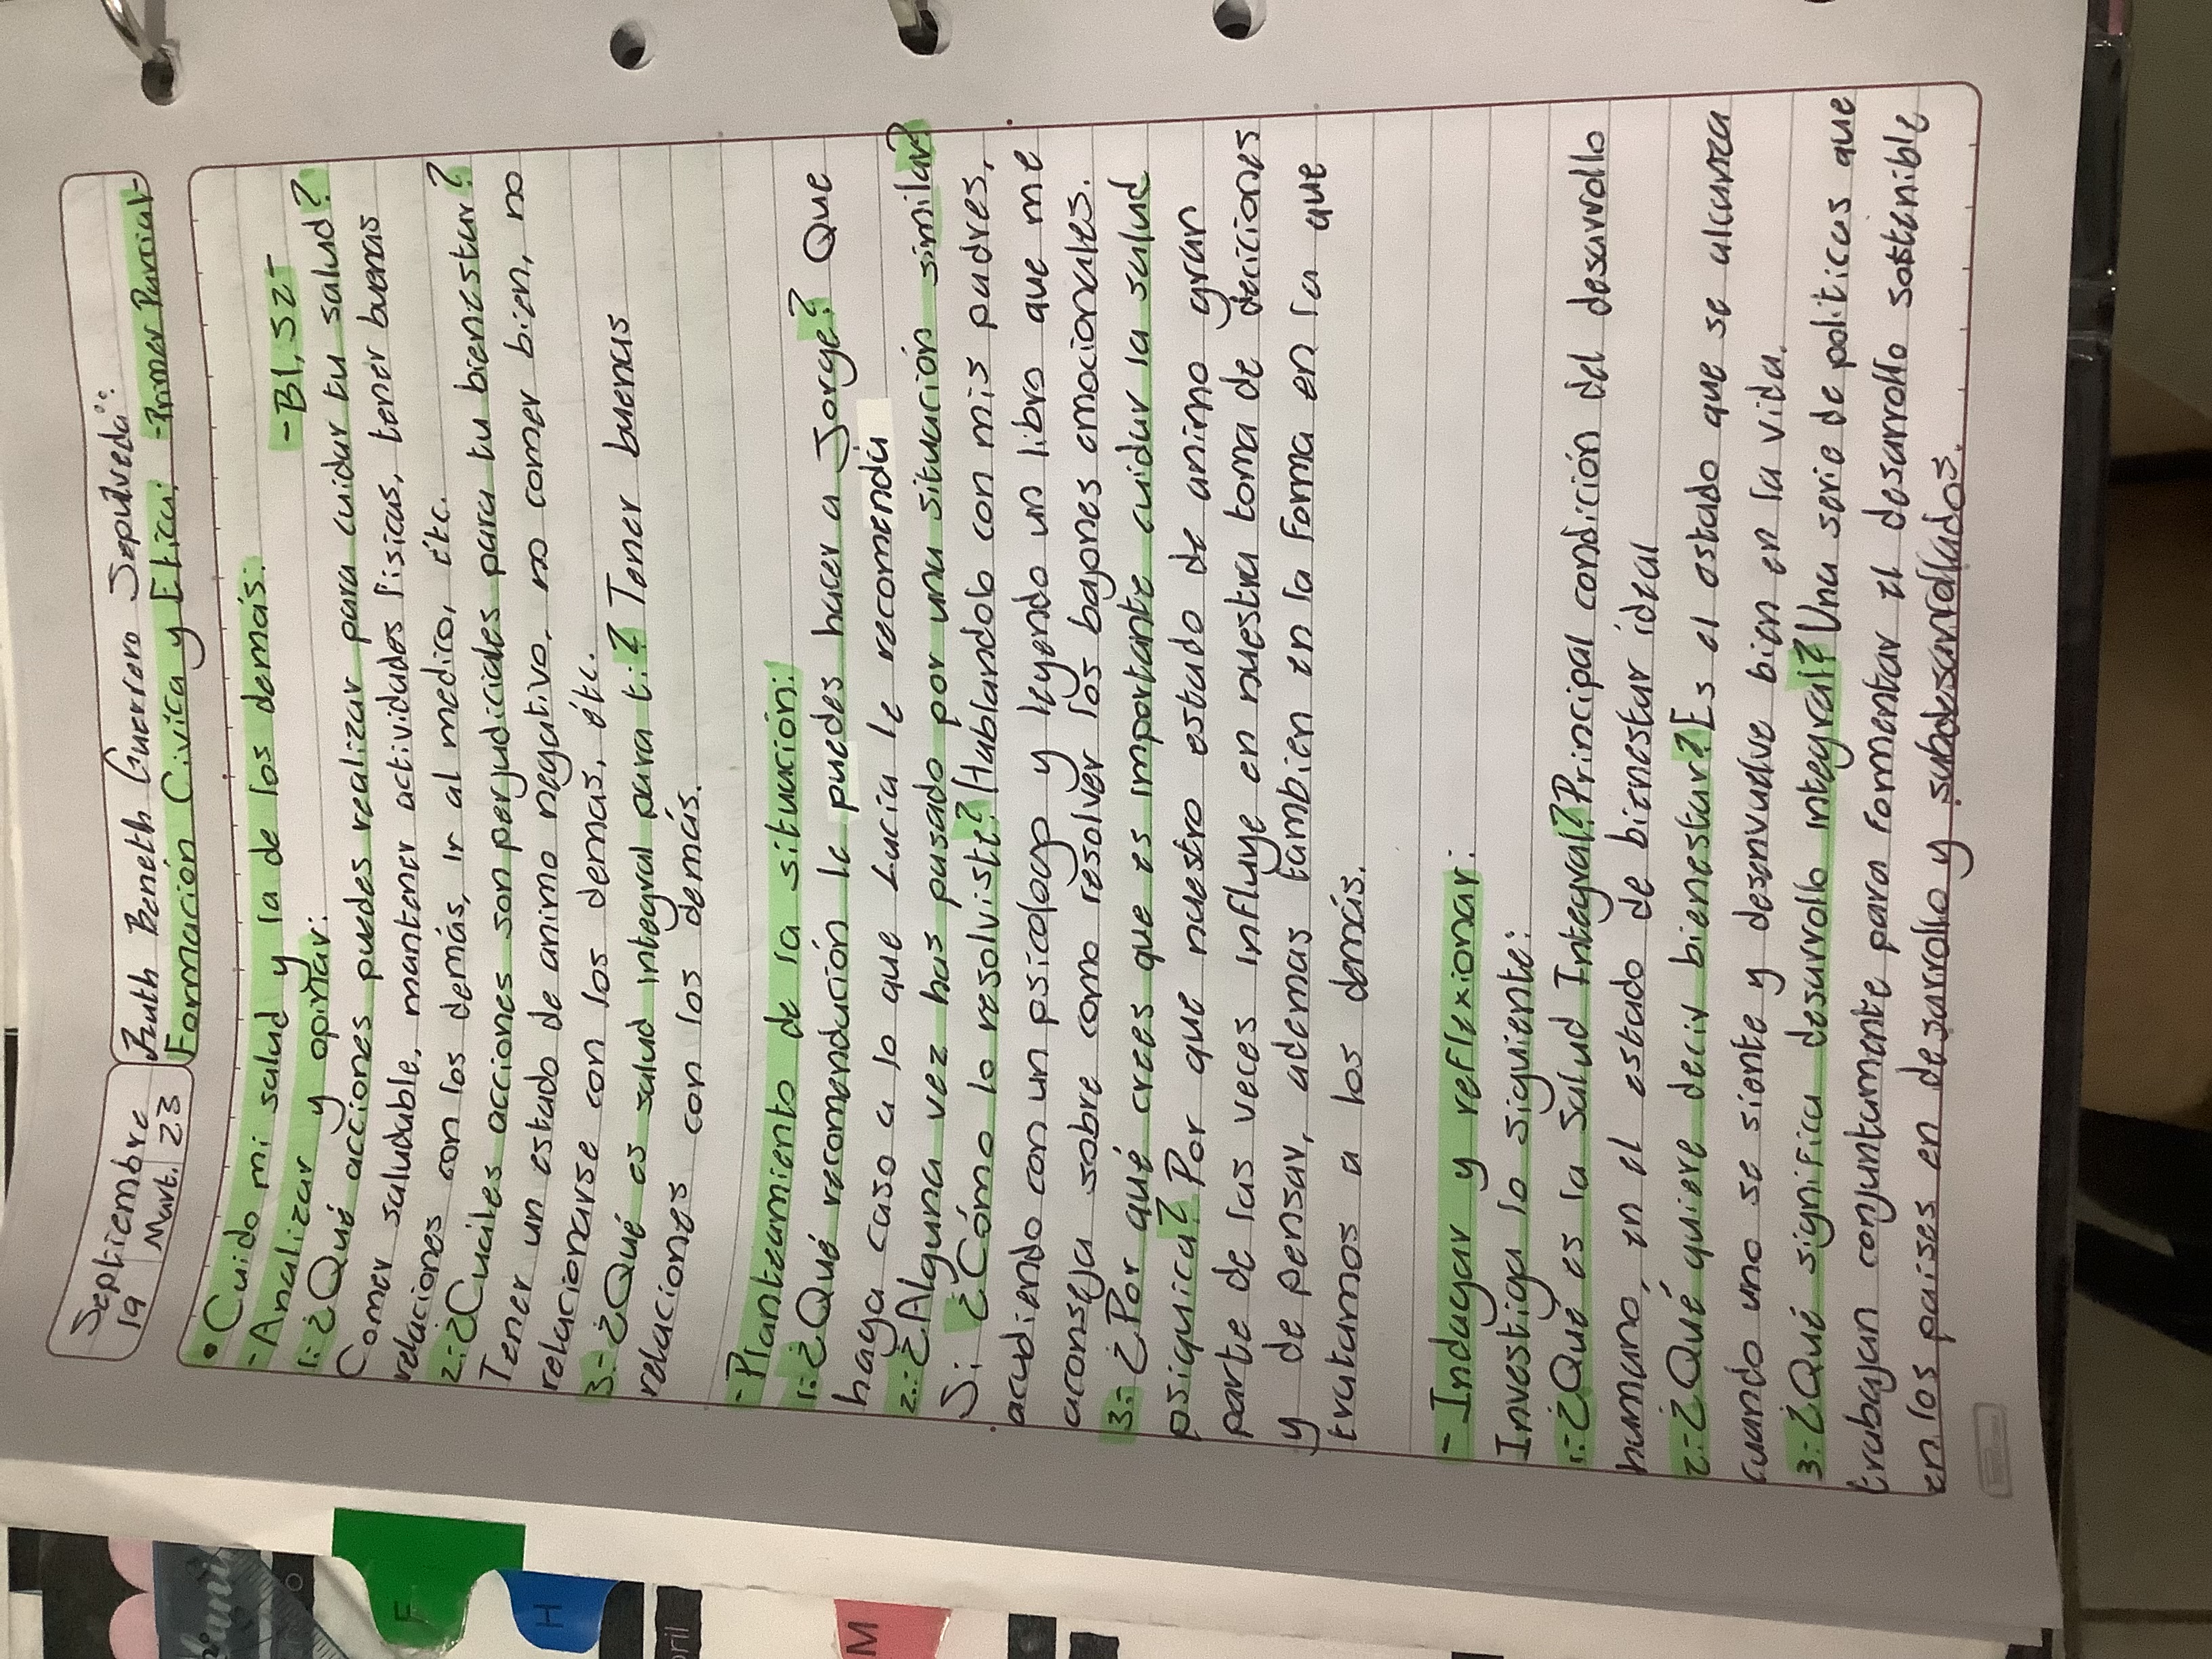 Septiembre
19 Mart. 23
Ruth Beneth Guerrero Sepulveda:
Formación Civica y Etica: -Primer Parcial-
• Cuido mi salud y la de los demás.
- Analizar y opinar: -B1, S2-
1.- ¿Qué acciones puedes realizar para cuidar tu salud?
Comer saludable, mantener actividades fisicas, tener buenas
relaciones con los demás, ir al medico, étc.
2.- ¿Cuáles acciones son perjudiciales para tu bienestar?
Tener un estado de animo negativo, no comer bien, no
relacionarse con los demas, étc.
3.- ¿Qué es salud integral para ti? Tener buenas
relaciones con los demás.
- Planteamiento de la situación:
1.- ¿Qué recomendación le puedes hacer a Jorge? Que
haga caso a lo que Lucia le recomenda
2.- ¿Alguna vez has pasado por una situación similar?
Si ¿Cómo lo resolviste? Hablandolo con mis padres,
acudiendo con un psicologo y leyendo un libro que me
aconseja sobre como resolver los bajones emocionales.
3.- ¿Por qué crees que es importante cuidar la salud
psiquica? Por que nuestro estado de animo gran
parte de las veces influye en nuestra toma de deciciones
y de pensar, ademas tambien en la forma en la que
tratamos a los demás.
- Indagar y reflexionar:
Investiga lo siguiente:
1.- ¿Qué es la Salud Integral? Principal condición del desarrollo
humano, en el estado de bienestar ideal
2.- ¿Qué quiere decir bienestar? Es el estado que se alcanza
cuando uno se siente y desenvuelve bien en la vida.
3.- ¿Qué significa desarrollo integral? Una serie de politicas que
trabajan conjuntamente para fomentar el desarrollo sostenible
en los paises en desarrollo y subdesarrollados.
F
H
M